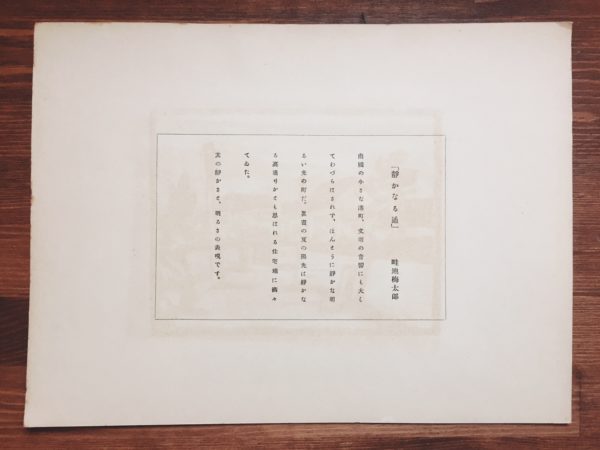 「靜かなる道」
畦地梅太郎
南國の小さな港町、文明の音響にも大し
てわづらはされず、ほんとうに靜かな明
るい光の町だ。眞晝の夏の陽光は靜かな
る裏通りかとも思はれる住宅地に滿々
てゐた。
其の靜かさと、明るさの表現です。